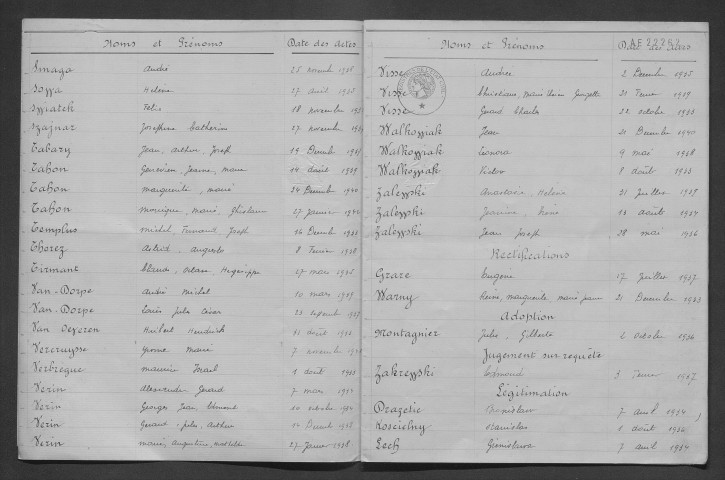 Noms et Prénoms Date des actes
Smaga André 25 novembre 1938
Soyya Helene 27 avril 1933
Swiatek Felix 18 novembre
Szajnar Josephine Catherine 27 novembre
Tabary Jean, Arthur, Joseph 19 Décembre 1937
Tahon Geneviève Jeanne, Marie 14 août 1939
Tahon Marguerite, Marie 24 Décembre 1940
Tahon Monique, Marie, Ghislaine 27 Janvier 1942
Templus Michel, Fernand, Joseph 16 Décembre 1933
Thorez Astrid, Augusta 8 Février 1938
Tirmant Claude, Octave 27 mars 1935
Van-Dorpe André Michel 10 mars 1939
Van-Dorpe Louis Jules César 23 1937
Van Oeyeren Hubert Hendrick 31 août
Vercruysse Yvonne Marie 7 novembre
Verbregue Maurice Marcel 1 août 1933
Verin Alexandre Gérard 7 mars 1933
Verin Georges Jean Edmond 20 octobre 1934
Verin Gérard, Jules, Arthur 14 Décembre 1938
Verin Marie, Augustine, Mathilde 27 Janvier 1938
Noms et Prénoms Date des actes
Visse Andrée 2 Décembre 1935
Visse Christiane, Marie Georgette 21 Février 1939
Visse Gérard Charles 22 octobre 1933
Walkowiak Jean 21 Décembre 1940
Walkowiak Leonora 9 mai 1938
Walkowiak Victor 8 août 1933
Zalewski Anastasie, Helene 21 Juillet 1937
Zalewski Jeannine, Irène 14 août 1934
Zalewski Jean Joseph 28 mai 1936
Rectifications
Grare Eugénie 17 Juillet 1937
Warny Reine, Marguerite, Marie 21 Décembre 1933
Adoption
Montagnier Julie, Gilberte 6 Octobre 1936
Jugement sur requête
Zakrewski Edmond 3 Février 1937
Légitimation
Drazetic Bronislaw 7 avril 1934
Koscielny Stanislas 1 août 1936
Lech Genowefa 7 avril 1934